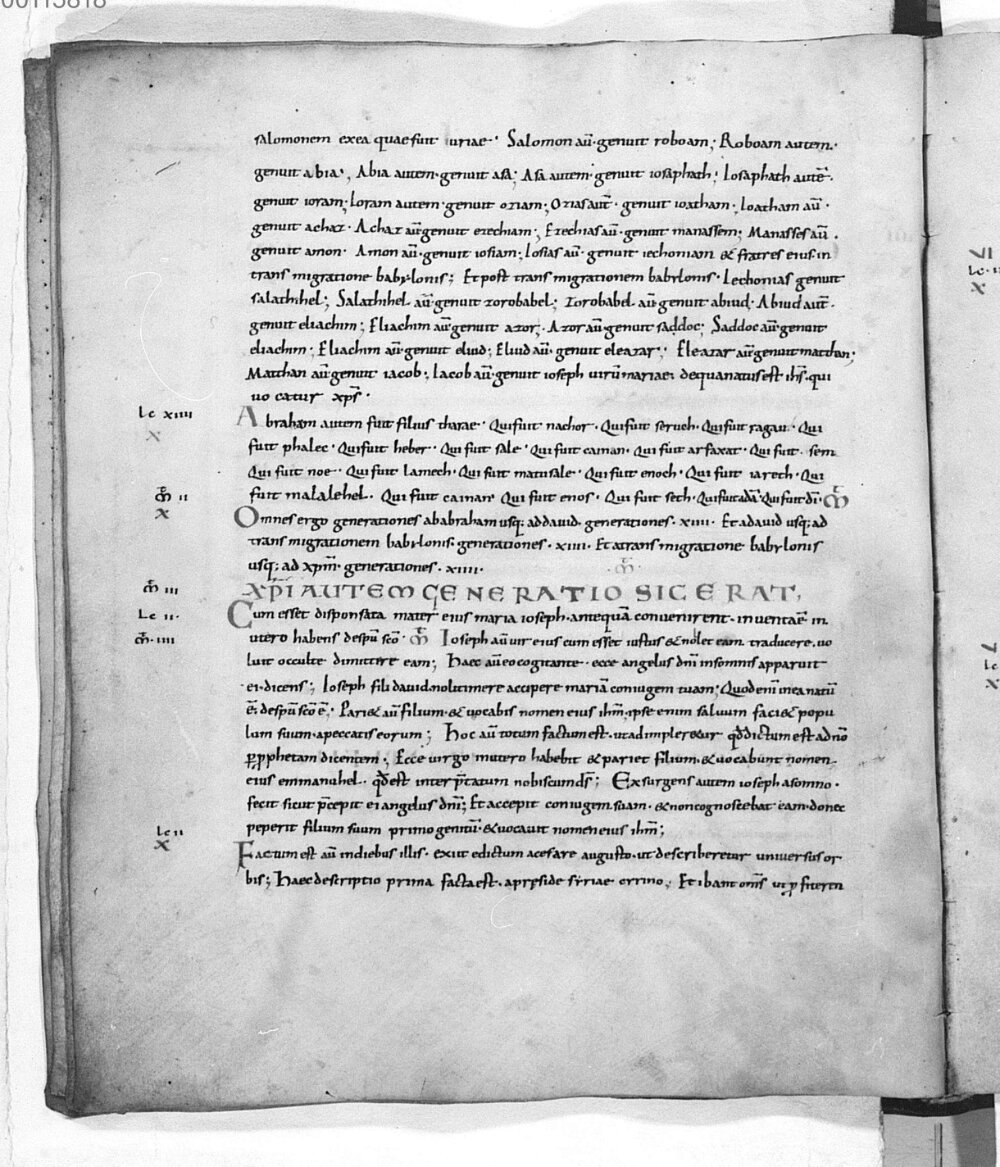 00113818
salomonem exea quaefuit uriae· Salomon aū·genuit roboam; Roboam autem·
genuit abia·, Abia autem·genuit asa; Asa autem·genuit iosaphath; Iosaphath autē·
genuit ioram; Ioram autem·genuit oziam; Ozias aut̄· genuit ioatham· Ioatham aū·
genuit achaz· Achaz aūgenuit ezechiam; Ezechias aū· genuit manassem; Manasses aū·
genuit amon· Amon aū·genuit iosiam; Iosias aū· genuit iechoniam & fratres eius in
trans migratione babylonis; Et post trans migrationem babylonis· Iechonias genuit
salathihel; Salathihel aū·genuit zorobabel; Zorobabel aū·genuit abiud· Abiud aut̄·
genuit eliachim; Eliachim aū·genuit azor; Azor aū·genuit saddoc; Saddoc aū·genuit
eliachim; Eliachim aū·genuit eliud; Eliud aū· genuit eleazar; Eleazar aū·genuit matthan;
Matthan aū·genuit iacob; Iacob aū·genuit ioseph uirūmariae· dequanatusest ih̅s·qui
uo catur xp̄s·
Lc xiiii
X
Abraham autem fuit filius tharae· Quifuit nachor· Quifuit seruch· Quifuit ragau· Qui
fuit phalec· Quifuit heber· Qui fuit sale· Qui fuit cainan· Qui fuit arfaxat· Qui fuit· sem
Qui fuit noe· Qui fuit lamech· Qui fuit matusale· Qui fuit enoch· Qui fuit iarech· Qui
fuit malalehel· Qui fuit cainan Qui fuit enos· Qui fuit seth· Quifuitadā· Quifuitdī· m̄
m̄ ii
X
Omnes ergo generationes ababraham usq; addauid· generationes· xiiii· Et adauid usq; ad
trans migrationem babylonis· generationes· xiiii· Et atrans migratione babylonis
usq; ad xp̄m· generationes· xiiii· m̄
m̄ iii
XP̄I AUTEM GENERATIO SIC ERAT,
Lc ii·
Cum esset disponsata mater eius maria ioseph· antequā conuenirent· inuentaē in
m̄·iiii
utero habens despū sc̄o· m̄ Ioseph aū uir eius cum esset iustus & nollet eam traducere· uo
luit occulte dimittere eam; Haec aū eo cogitante· ecce angelus dn̄i insomnis apparuit
ei·dicens; Ioseph fili dauid·nolitimere accipere mariā coniugem tuam; Quodenī inea natū
ē· despū sc̄o ē· Pari& aū filium· & uocabis nomen eius ih̅m; ipse enim saluum faci& popu
lum suum· apeccatis eorum; Hoc aū totum factum est· utadimpler&ur qd̄dictum est adn̄o
p̱p̱phetam dicentem; Ecce uirgo inutero habebit & pariet filium· & uocabunt nomen
eius emmanuhel· qd̄est interp̄tatum nobiscumds̄; Exsurgens autem ioseph asomno·
fecit sicut p̄cepit ei angelus dn̄i; Et accepit coniugem suam· & noncognoscebat eam· donec
peperit filium suum primogenitū· & uocauit nomen eius ih̅m;
Lc ii
X
Factum est aū indiebus illis· exiit edictum acesare augusto· ut describeretur uniuersus or
bis; Haec descriptio prima facta est· apreside syriae cirino; Et ibant om̄s ut p̱fiteren